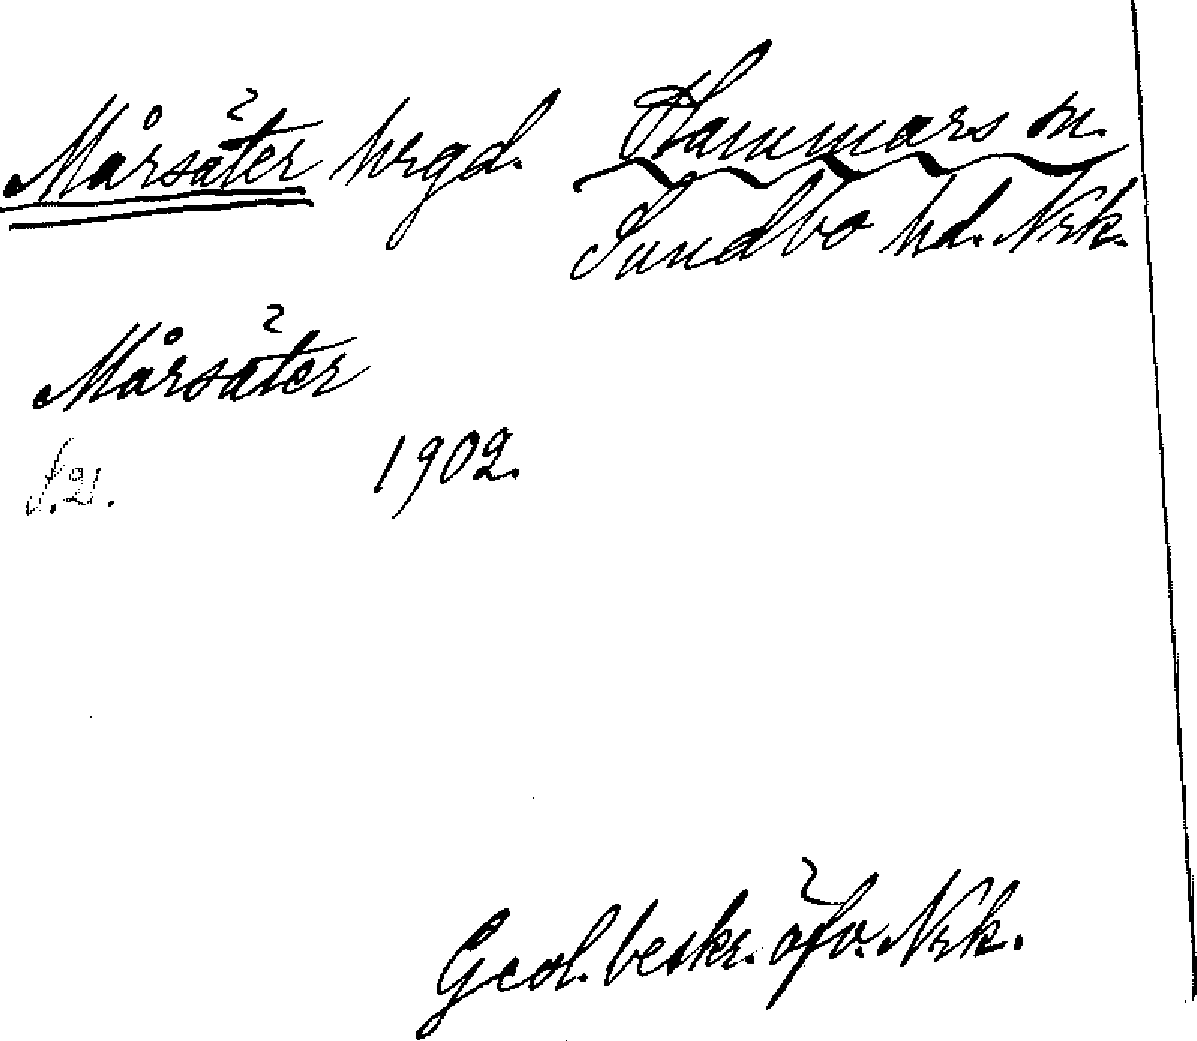 Mårsäter hrgd. Hammars sn.
Sundbo hd. Nrk.
Mårsäter
s. 21. 1902.
Geol. beskr. öfv. Nrk.